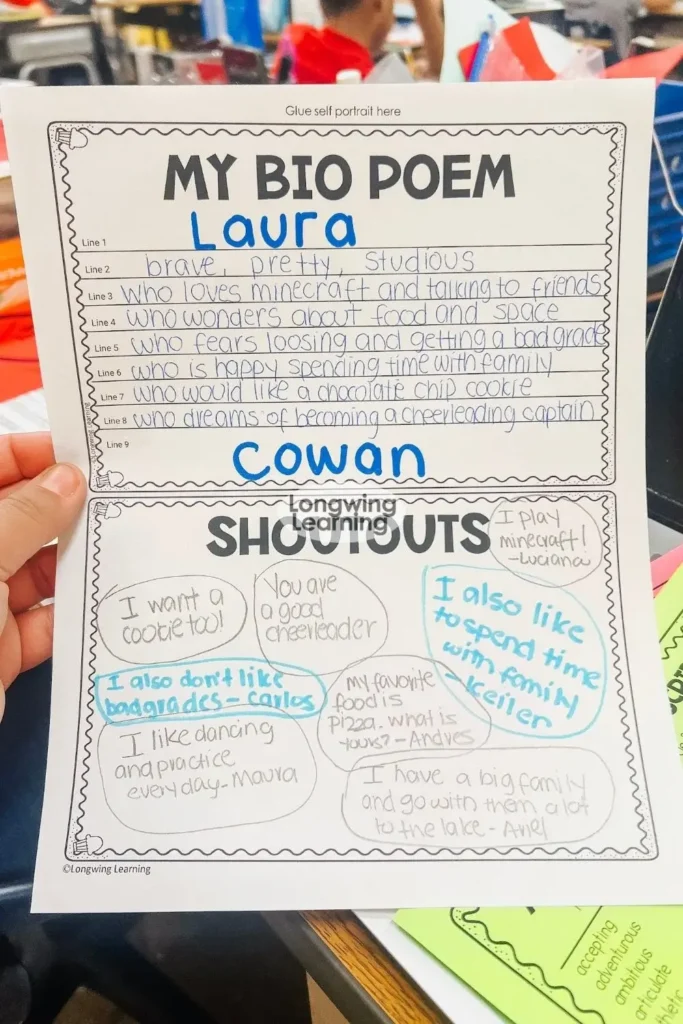 Glue self portrait here
MY BIO POEM
Line 1 Laura
Line 2 brave, pretty, studious
Line 3 who loves minecraft and talking to friends
Line 4 who wonders about food and space
Line 5 who fears loosing and getting a bad grade
Line 6 who is happy spending time with family
Line 7 who would like a chocolate chip cookie
Line 8 who dreams of becoming a cheerleading captain
Line 9
Cowan
©Longwing Learning
Longwing
Learning
SHOUTOUTS
I play
minecraft!
-Luciana
I want a
cookie too!
You are
a good
cheerleader
I also like
to spend time
with family
- Keiler
I also don't like
bad grades - Carlos
my favorite
food is
pizza. what is
yours? - Andres
I like dancing
and practice
everyday - Maura
I have a big family
and go with them a lot
to the lake - Ariel
©Longwing Learning
accepting
adventurous
ambitious
articulate